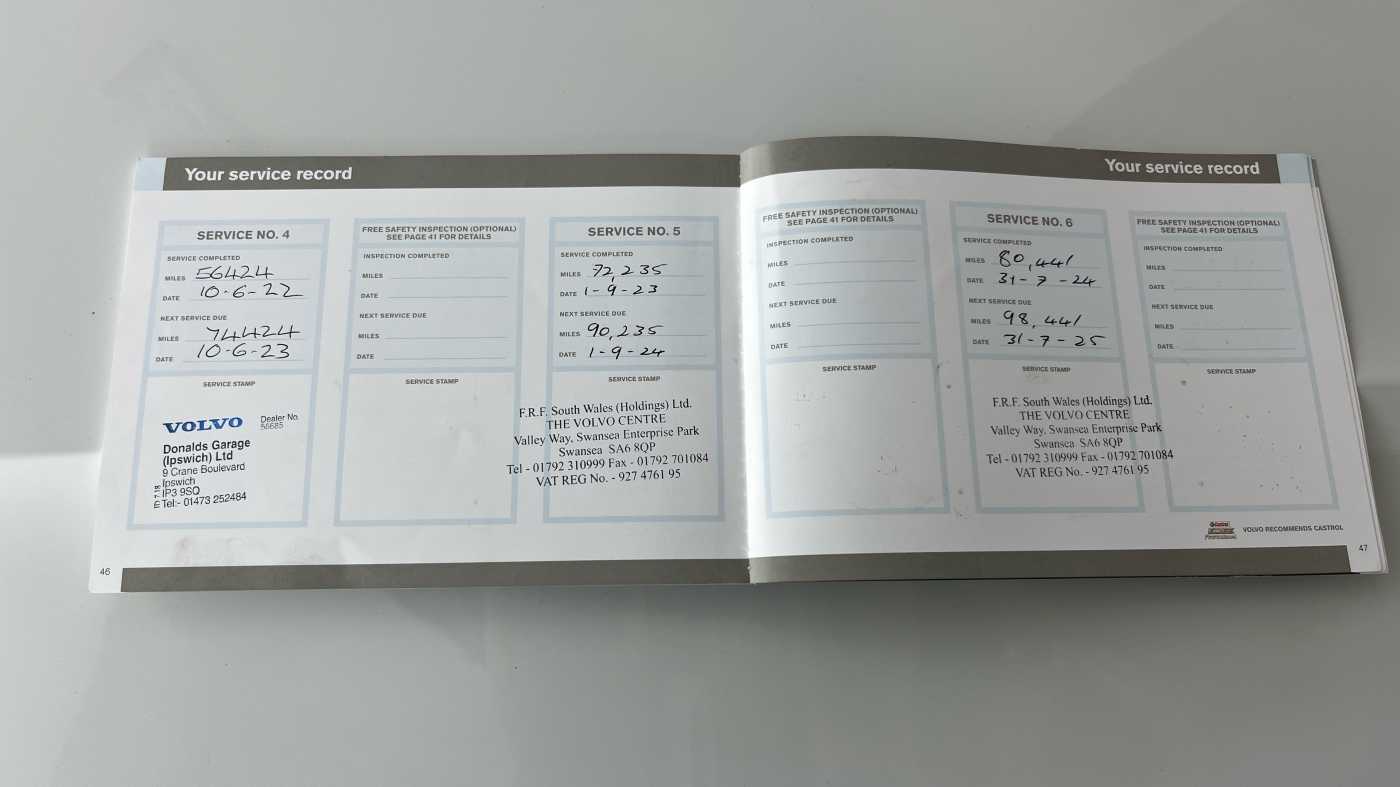 Your service record
SERVICE NO. 4
SERVICE COMPLETED
MILES 56424
DATE 10-6-22
NEXT SERVICE DUE
MILES 74424
DATE 10-6-23
SERVICE STAMP
VOLVO Dealer No.
56685
Donalds Garage
(Ipswich) Ltd
9 Crane Boulevard
Ipswich
IP3 9SQ
Tel:- 01473 252484
FREE SAFETY INSPECTION (OPTIONAL)
SEE PAGE 41 FOR DETAILS
INSPECTION COMPLETED
MILES
DATE
NEXT SERVICE DUE
MILES
DATE
SERVICE STAMP
SERVICE NO. 5
SERVICE COMPLETED
MILES 72,235
DATE 1-9-23
NEXT SERVICE DUE
MILES 90,235
DATE 1-9-24
SERVICE STAMP
F.R.F. South Wales (Holdings) Ltd.
THE VOLVO CENTRE
Valley Way, Swansea Enterprise Park
Swansea SA6 8QP
Tel - 01792 310999 Fax - 01792 701084
VAT REG No. - 927 4761 95
46
Your service record
FREE SAFETY INSPECTION (OPTIONAL)
SEE PAGE 41 FOR DETAILS
INSPECTION COMPLETED
MILES
DATE
NEXT SERVICE DUE
MILES
DATE
SERVICE STAMP
SERVICE NO. 6
SERVICE COMPLETED
MILES 80,441
DATE 31-7-24
NEXT SERVICE DUE
MILES 98,441
DATE 31-7-25
SERVICE STAMP
F.R.F. South Wales (Holdings) Ltd.
THE VOLVO CENTRE
Valley Way, Swansea Enterprise Park
Swansea SA6 8QP
Tel - 01792 310999 Fax - 01792 701084
VAT REG No. - 927 4761 95
FREE SAFETY INSPECTION (OPTIONAL)
SEE PAGE 41 FOR DETAILS
INSPECTION COMPLETED
MILES
DATE
NEXT SERVICE DUE
MILES
DATE
SERVICE STAMP
Castrol
Professional
VOLVO RECOMMENDS CASTROL
47